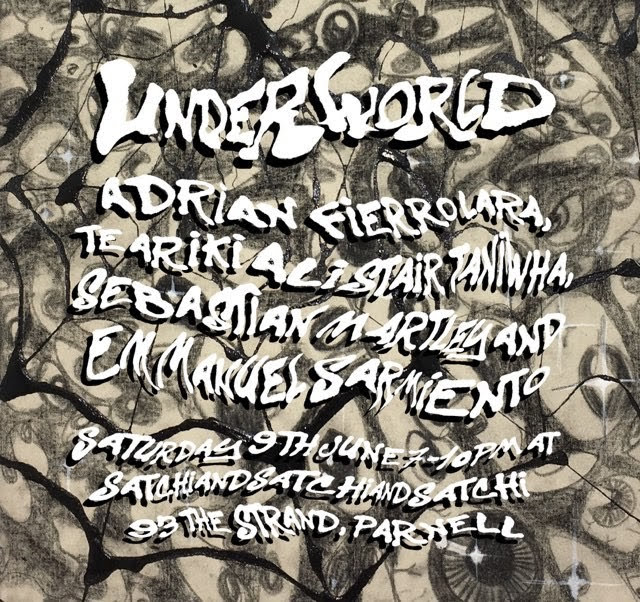 UNDERWORLD
ADRIAN FIERROLARA,
TE ARIKI ALISTAIR TANIWHA,
SEBASTIAN MARTLEY AND
EMMANUEL SARMIENTO
SATURDAY 9TH JUNE 7-10PM AT
SATCHIANDSATCHIANDSATCHI
93 THE STRAND, PARNELL